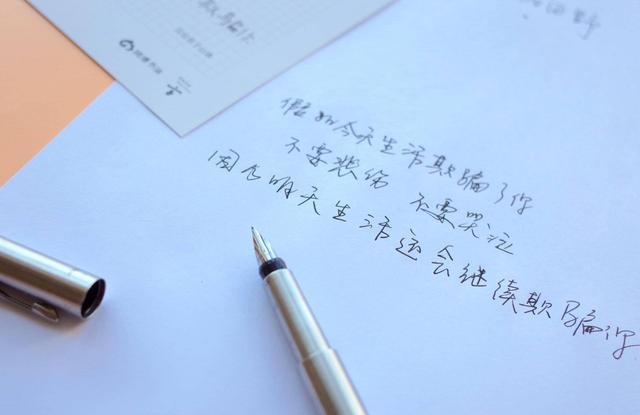 假如今天生活欺骗了你
不要悲伤 不要哭泣
因为明天生活还会继续欺骗你